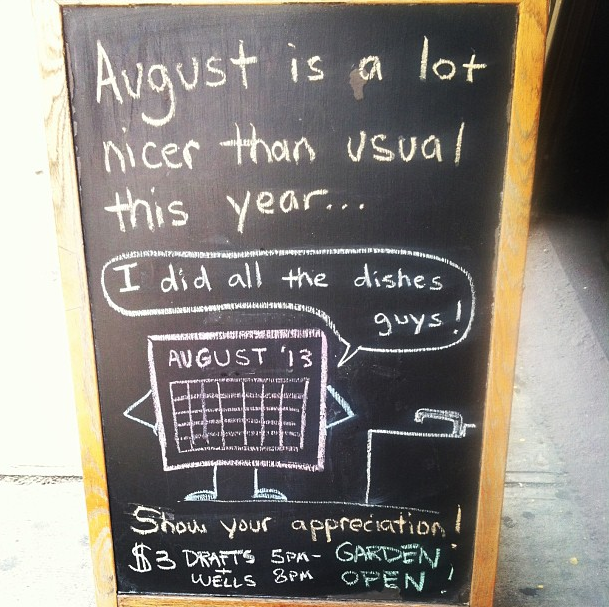 August is a lot
nicer than usual
this year...
I did all the dishes
guys!
AUGUST '13
Show your appreciation!
$3 DRAFTS + WELLS 5PM - 8PM
GARDEN OPEN!